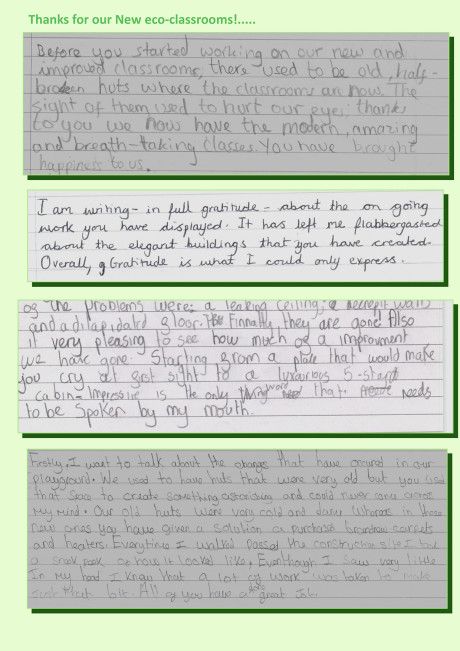 Thanks for our New eco-classrooms!.....
Before you started working on our new and
improved classrooms, there used to be old, half-
broken huts where the classrooms are now. The
sight of them used to hurt our eyes; thanks
to you we now have the modern, amazing
and breath-taking classes. You have brought
happiness to us.
I am writing - in full gratitude - about the on going
work you have displayed. It has left me flabbergasted
about the elegant buildings that you have created.
Overall, Gratitude is what I could only express.
of the problems were: a leaking ceiling; a
and a dilapidated floor. Finnally, they are gone! Also
it very pleasing to see how much of a improvment
we have gone. Starting from a place that would make
you cry at first sight to a luxurious 5-star
cabin. Impressive is the only word that needs
to be spoken by my mouth.
Firstly, I want to talk about the changes that have occured in our
playground. We used to have huts that were very old but you used
that space to create something astonishing and could never come across
my mind. Our old huts were very cold and damp whereas in these
new ones you have given a solution of purchase brandnew carpets
and heaters. Everytime I walked passed the construction site I took
a sneak peek of how it looked like, Eventhough I saw very little
In my head I knew that a lot of work was taken to make
that bit. All of you have a great Job.